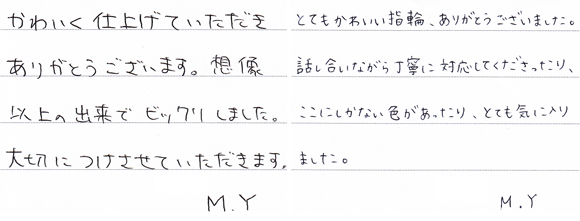 かわいく仕上げていただき
ありがとうございます。想像
以上の出来でビックリしました。
大切につけさせていただきます。
M.Y
とてもかわいい指輪、ありがとうございました。
話し合いながら丁寧に対応してくださったり、
ここにしかない色があったり、とても気に入り
ました。
M.Y